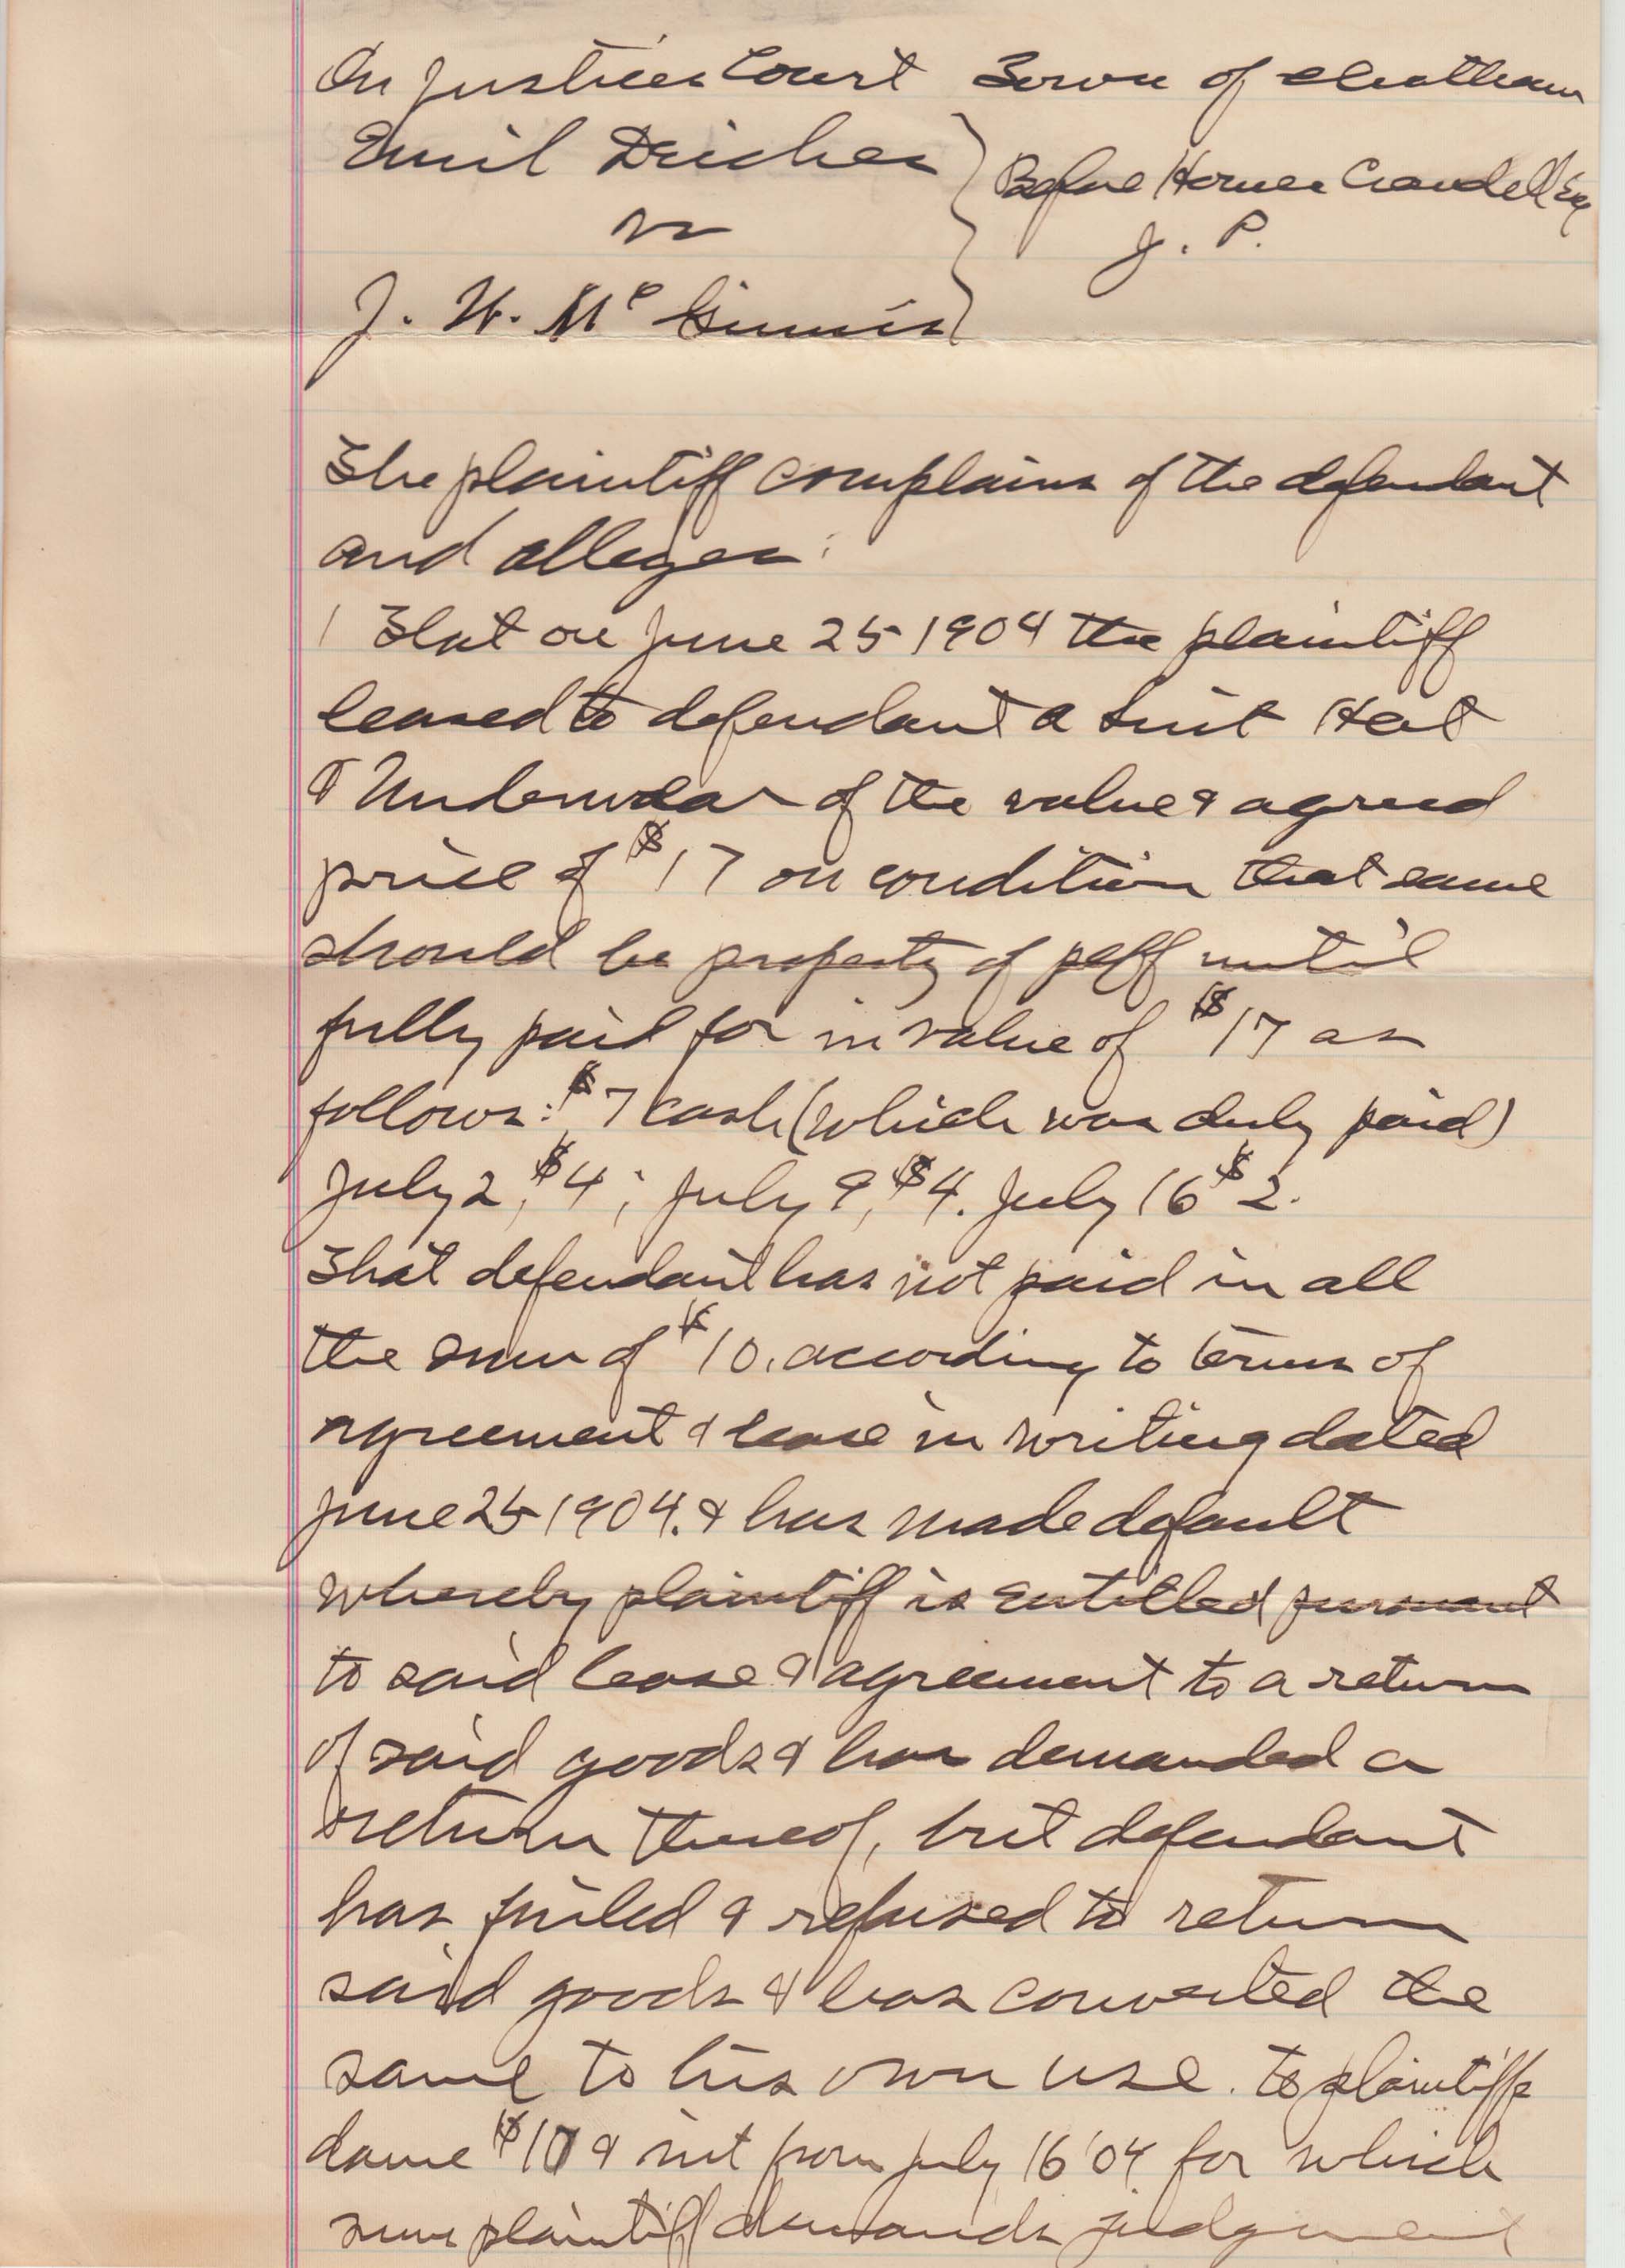 In Justices Court Town of Chatham
Emil Deicher
vs
J. W. Mc Ginnis
Before Homer Crandell Esq
J. P.
The plaintiff complains of the defendant
and alleges:
1 That on June 25 1904 the plaintiff
leased to defendant a Suit Hat
& Underwear of the value & agreed
price of $17 on condition that same
should be property of plff until
fully paid for in value of $17 as
follows: $7 cash (which was duly paid)
July 2, $4; July 9, $4. July 16 $2.
That defendant has not paid in all
the sum of $10. according to terms of
agreement & lease in writing dated
June 25 1904. & has made default
whereby plaintiff is entitled pursuant
to said lease & agreement to a return
of said goods & has demanded a
return thereof, but defendant
has failed & refused to return
said goods & has converted the
same to his own use. to plaintiffs
dame $10 & int from July 16 '04 for which
sum plaintiff demands judgment